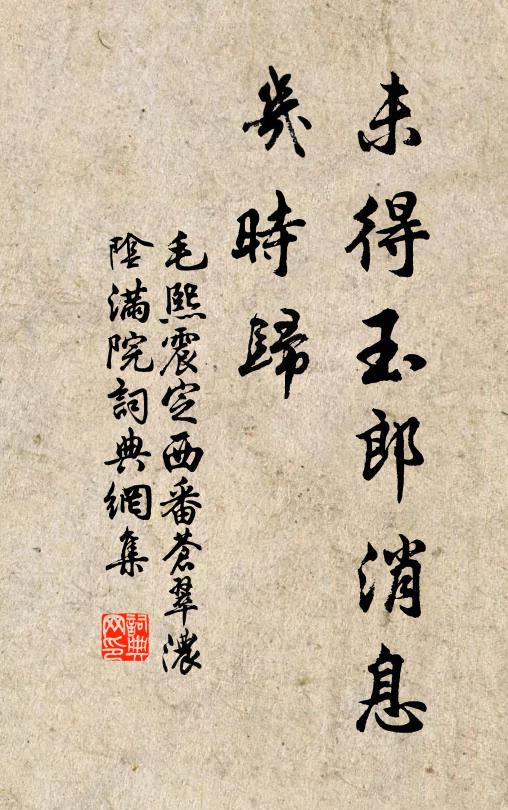 未得玉郎消息
幾時歸
毛熙震定西番蒼翠濃
陰滿院詞典網集
詞典
网印